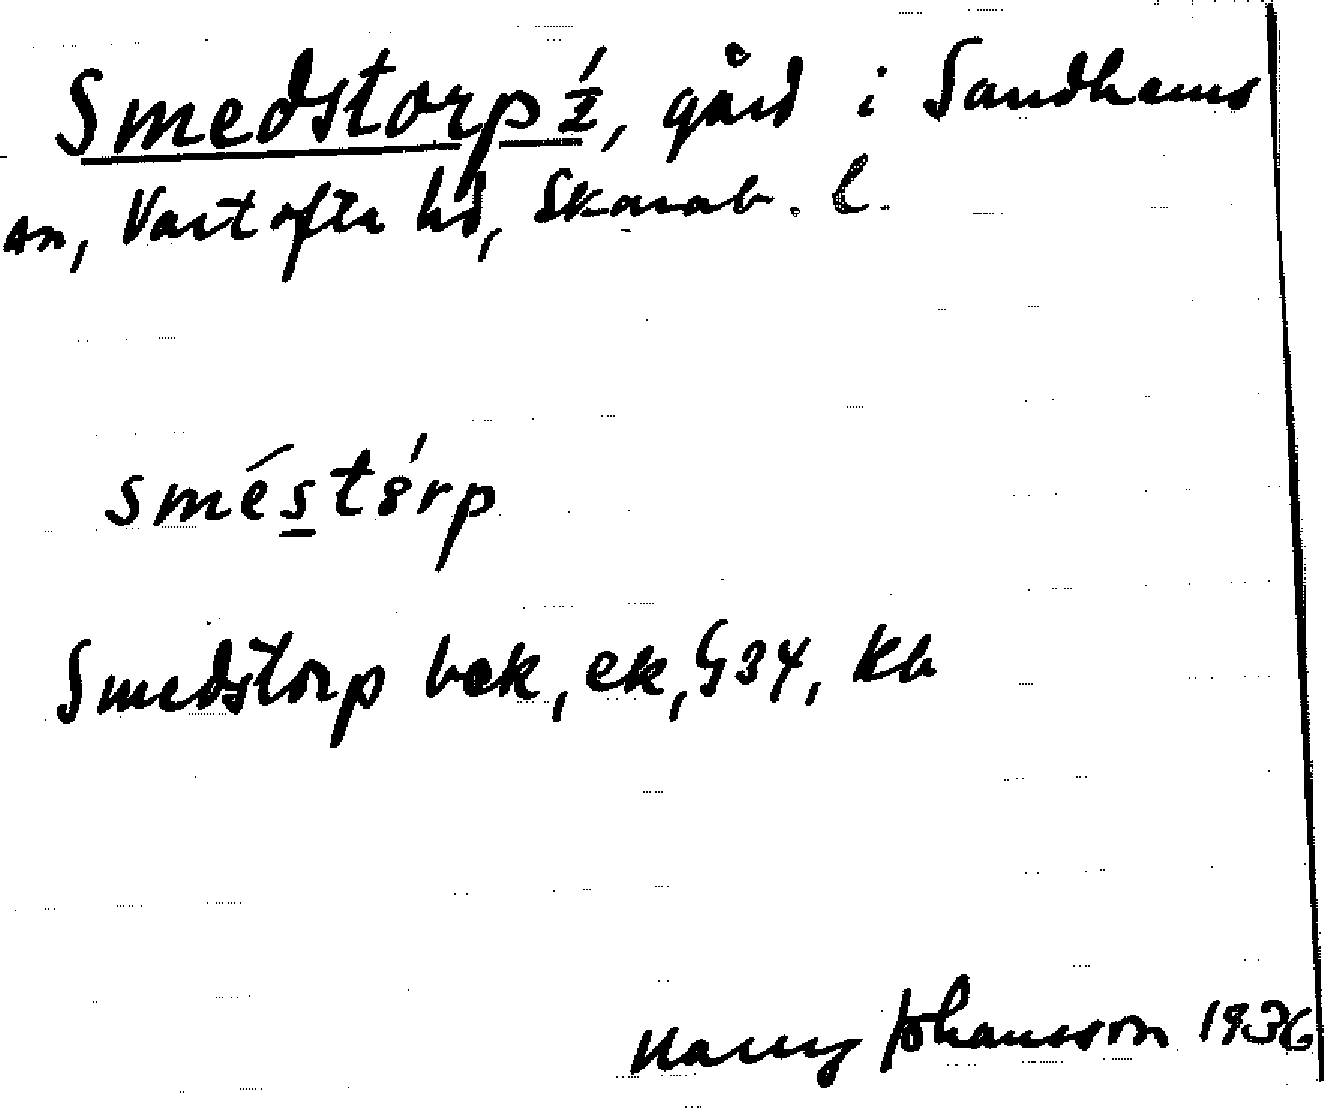 Smedstorp 1/2, gård i Sandhems
sn, Vartofta hd, Skarab. l.
sméstórp
Smedstorp bek, ek, G34, Kb
Harry Johansson 1936